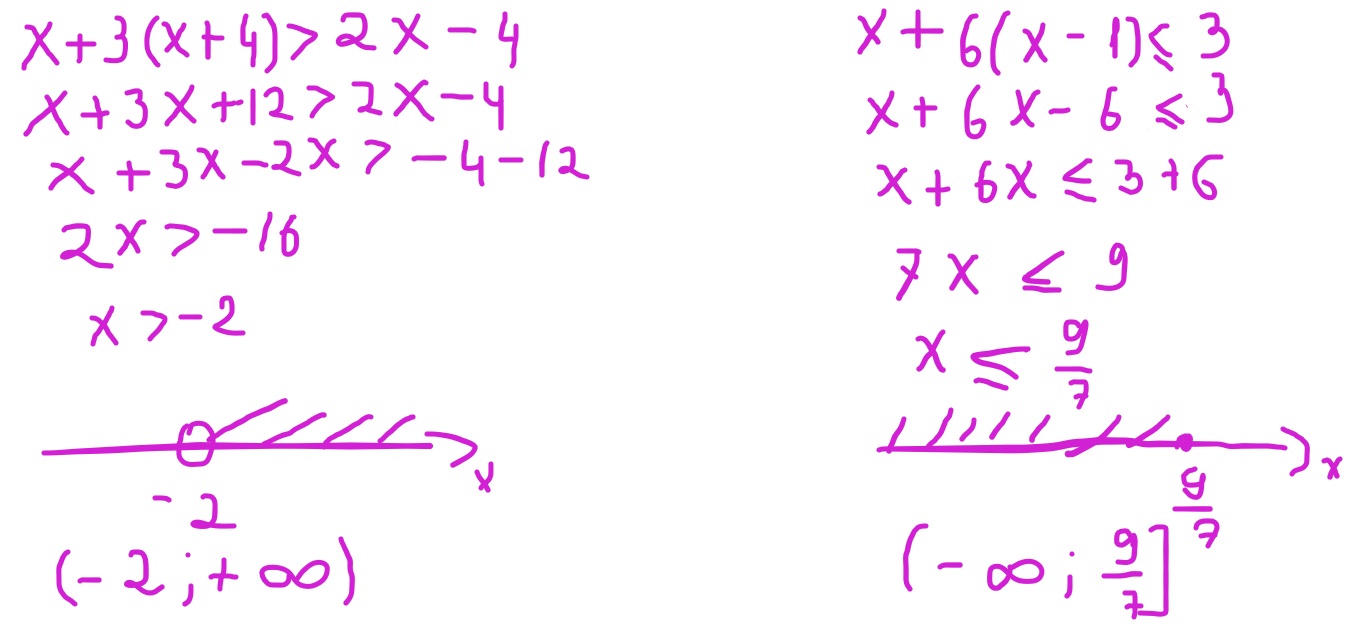 x+3(x+4)>2x-4
x+3x+12>2x-4
x+3x-2x>-4-12
2x>-16
x>-2
x
-2
(-2;+∞)
x+6(x-1)≤3
x+6x-6≤3
x+6x≤3+6
7x≤9
x≤9/7
x
9/7
(-∞;9/7]